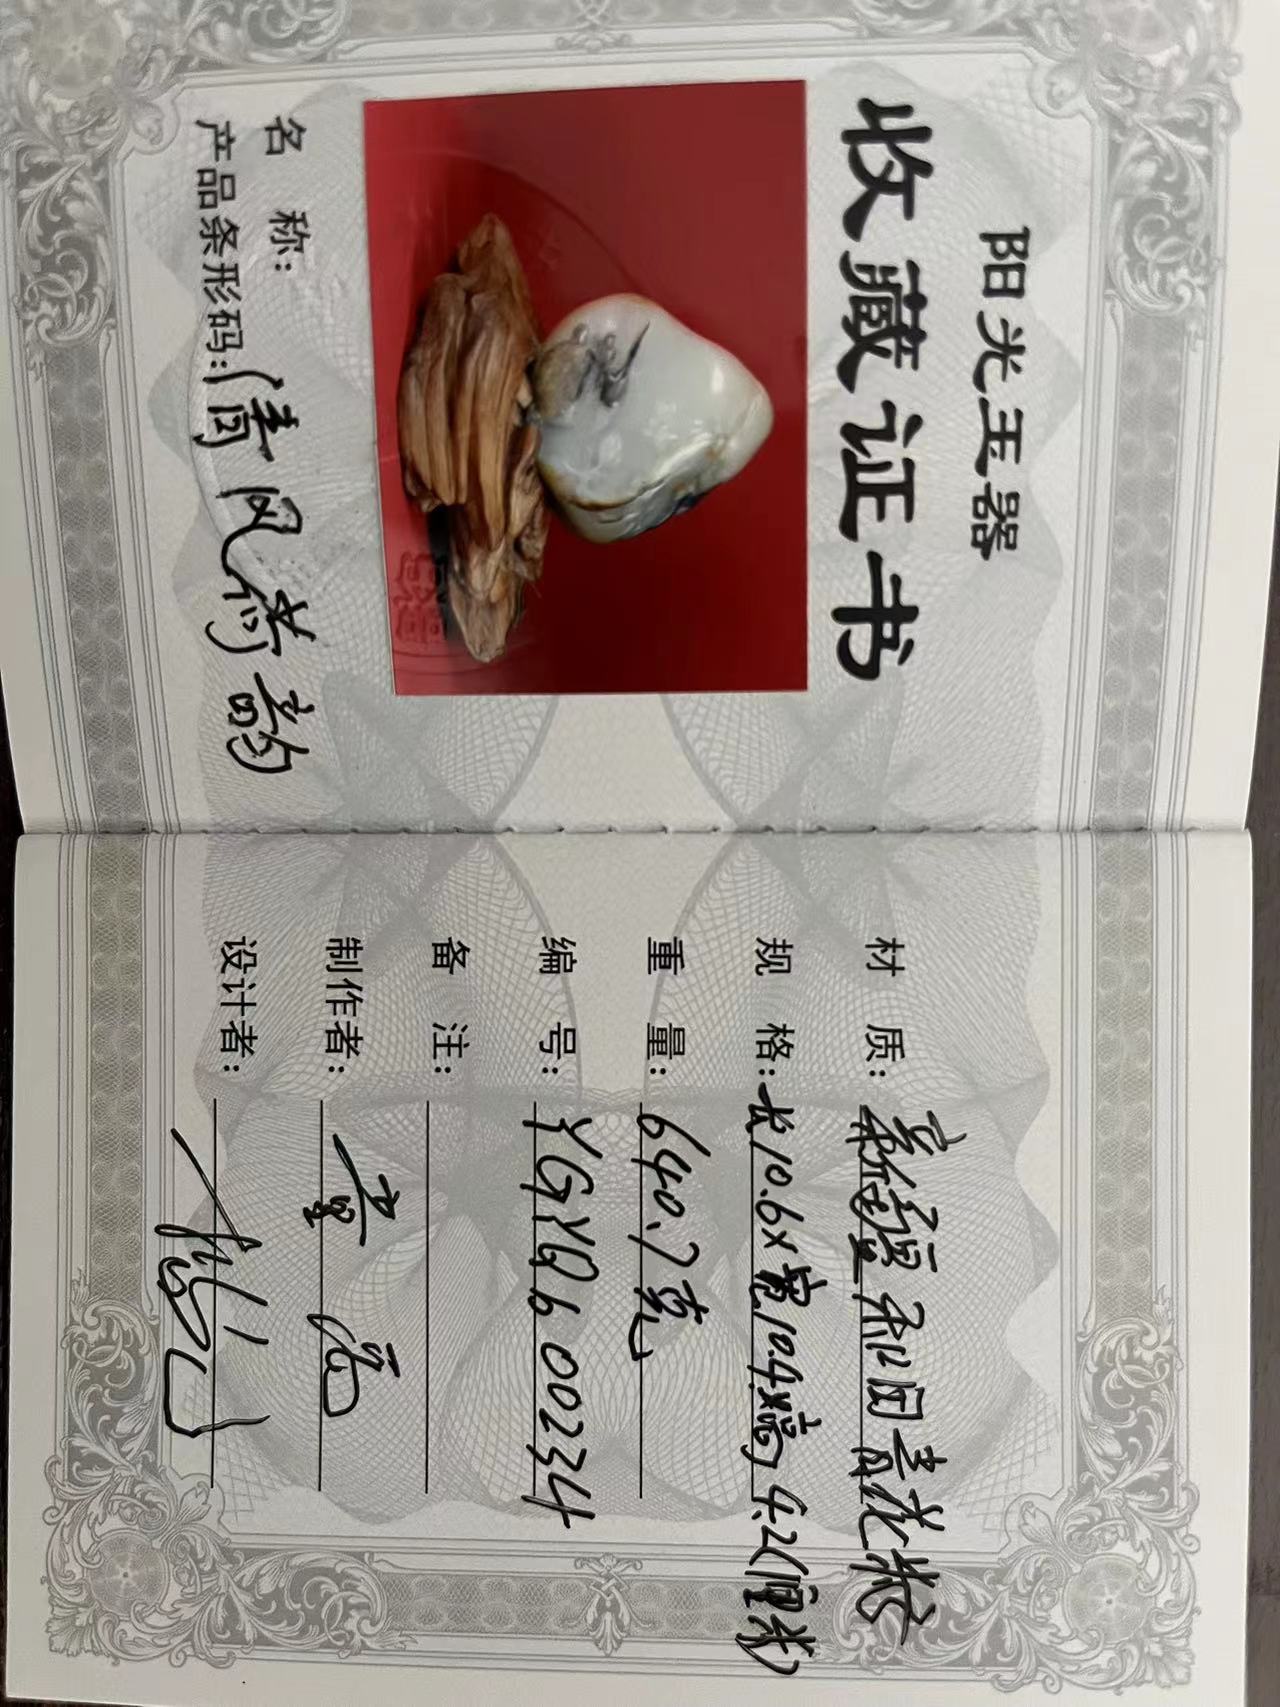 阳光玉器
收藏证书
名 称:
产品条形码:清风荷韵
材 质:新疆和田青花籽
规 格:长10.6x宽10.4x高4.2(厘米)
重 量:640.7克
编 号:YGYQ600234
备 注:
制作者:
设计者: